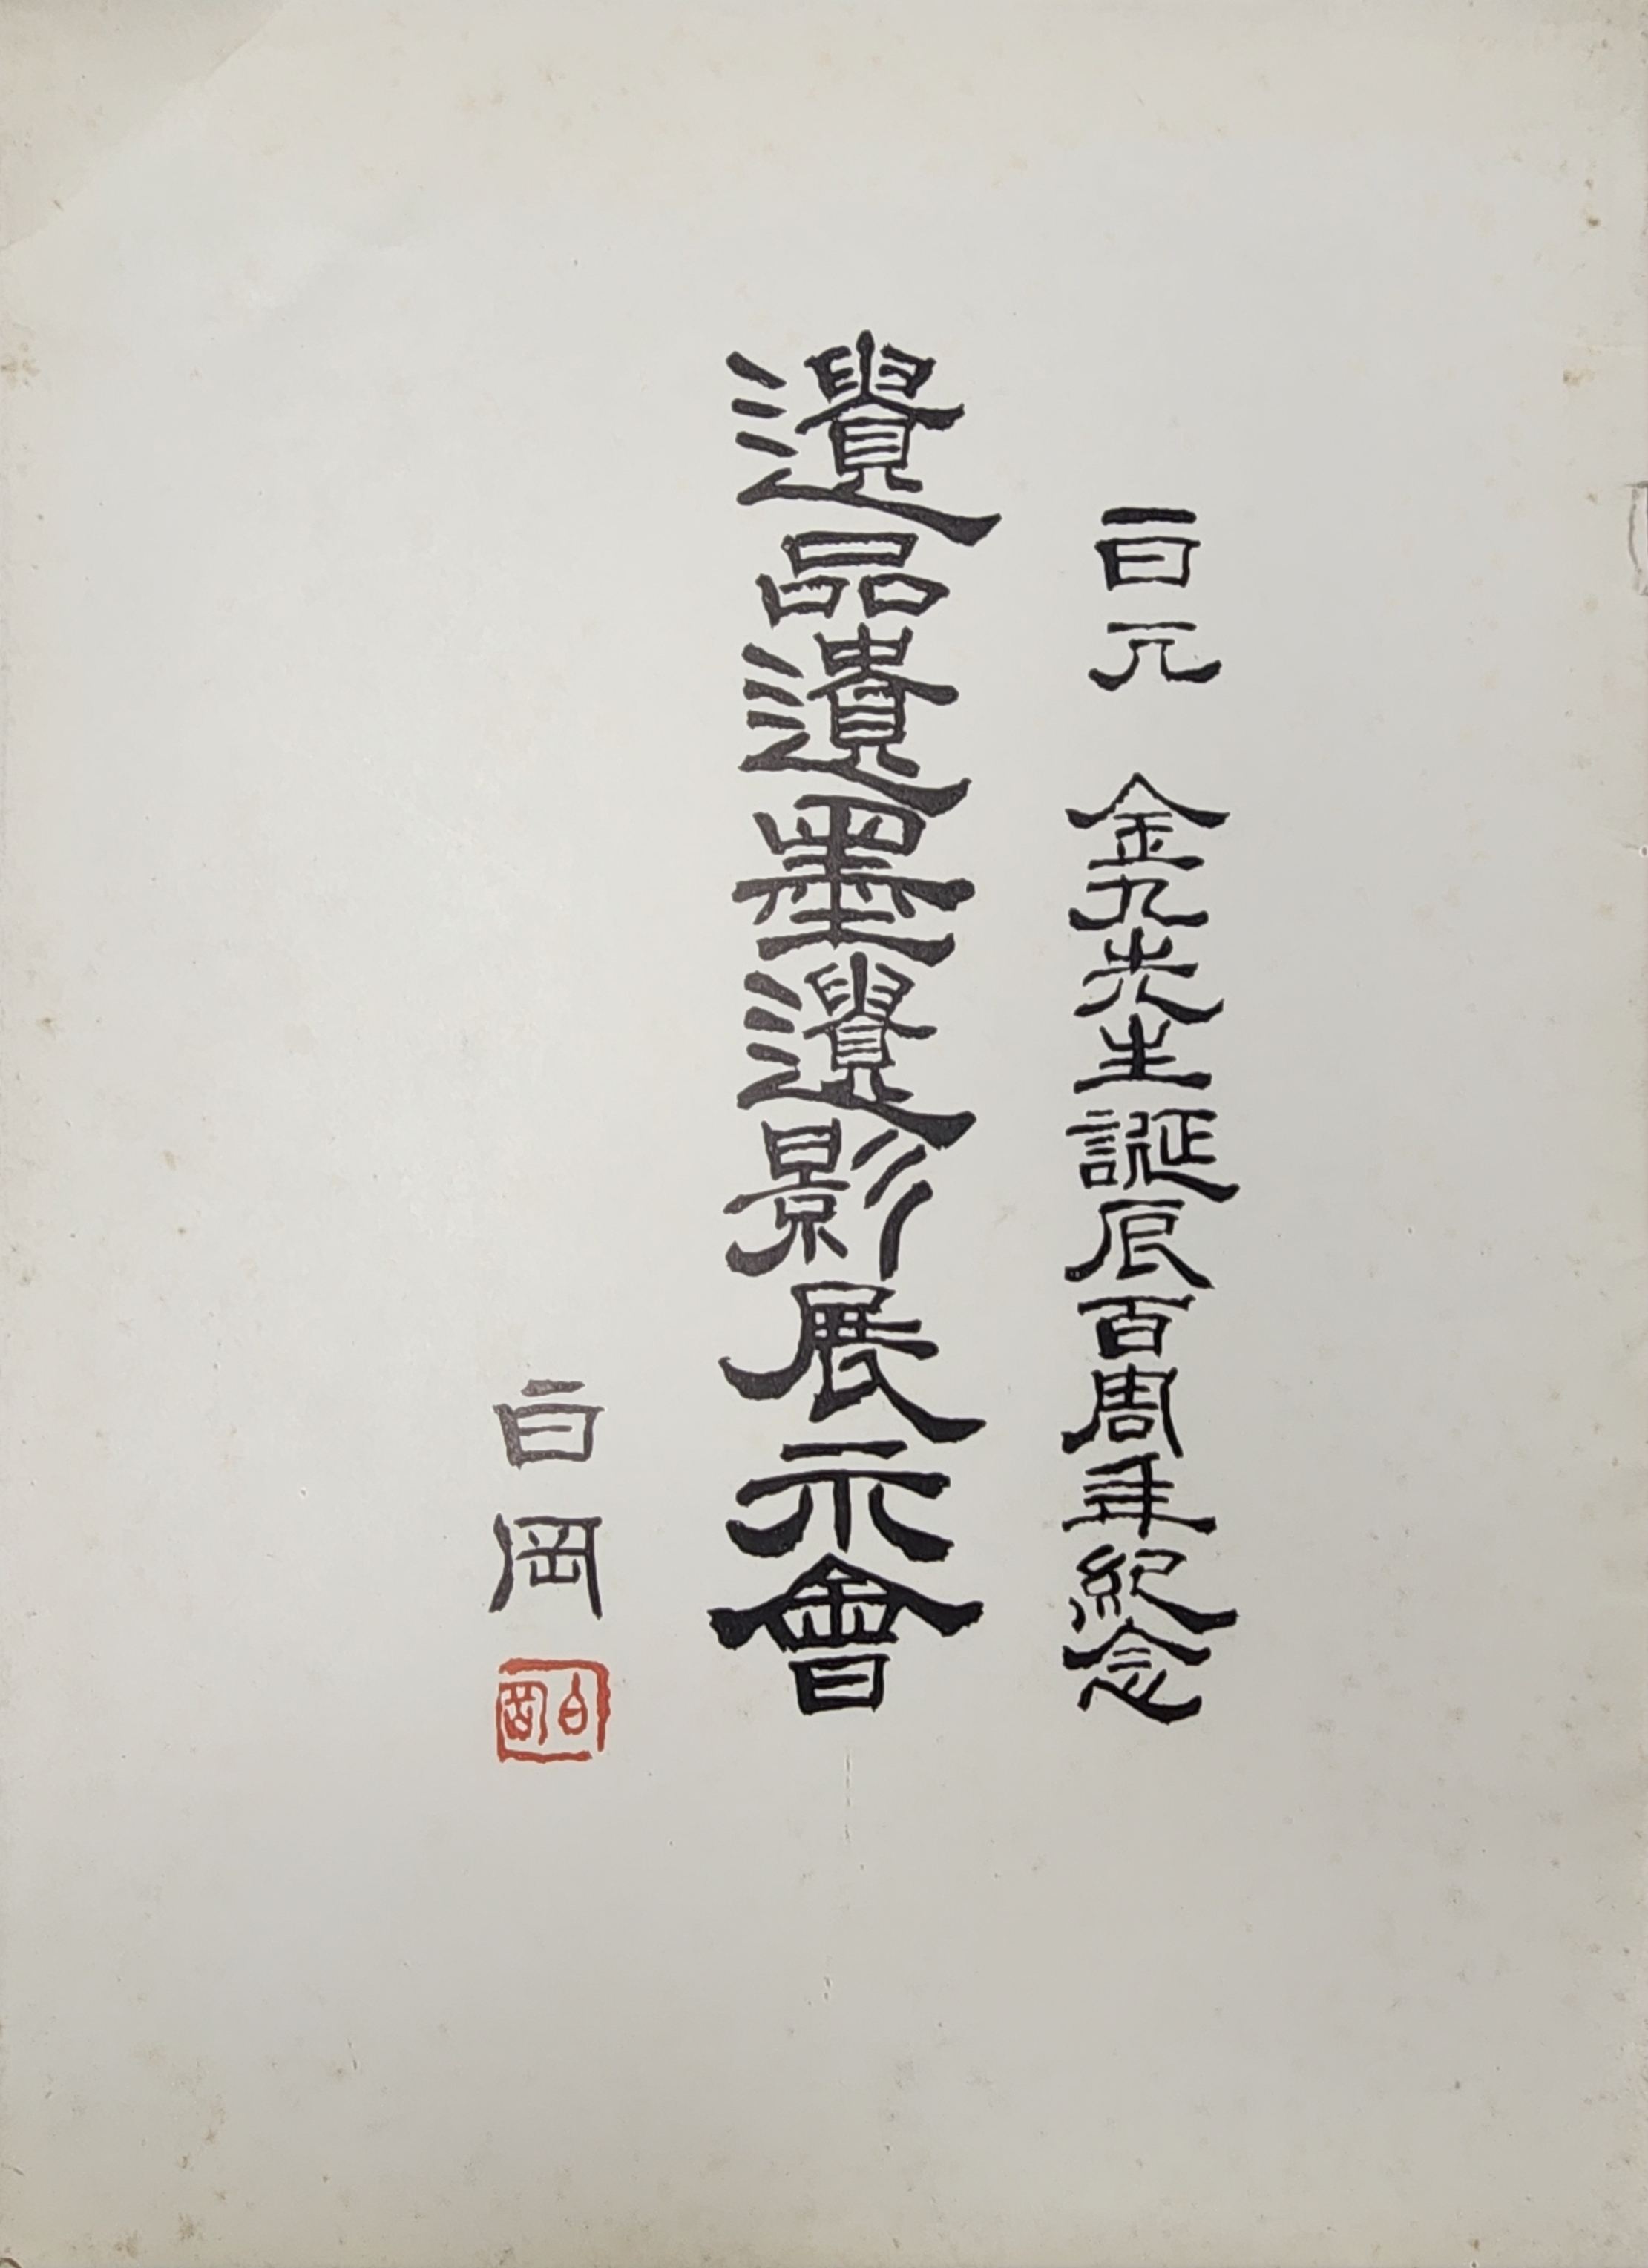 白凡 金九先生誕辰百周年紀念
遺品遺墨遺影展示會
白岡
白岡